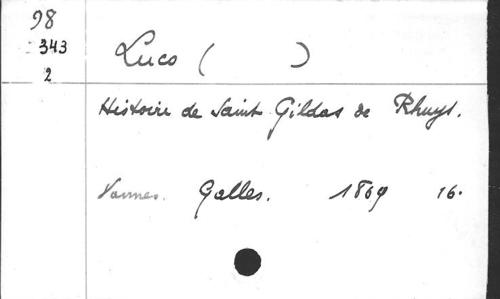 98
343
2
Luco ( )
Histoire de Saint Gildas de Rhuys.
Vannes. Galles. 1869 16.